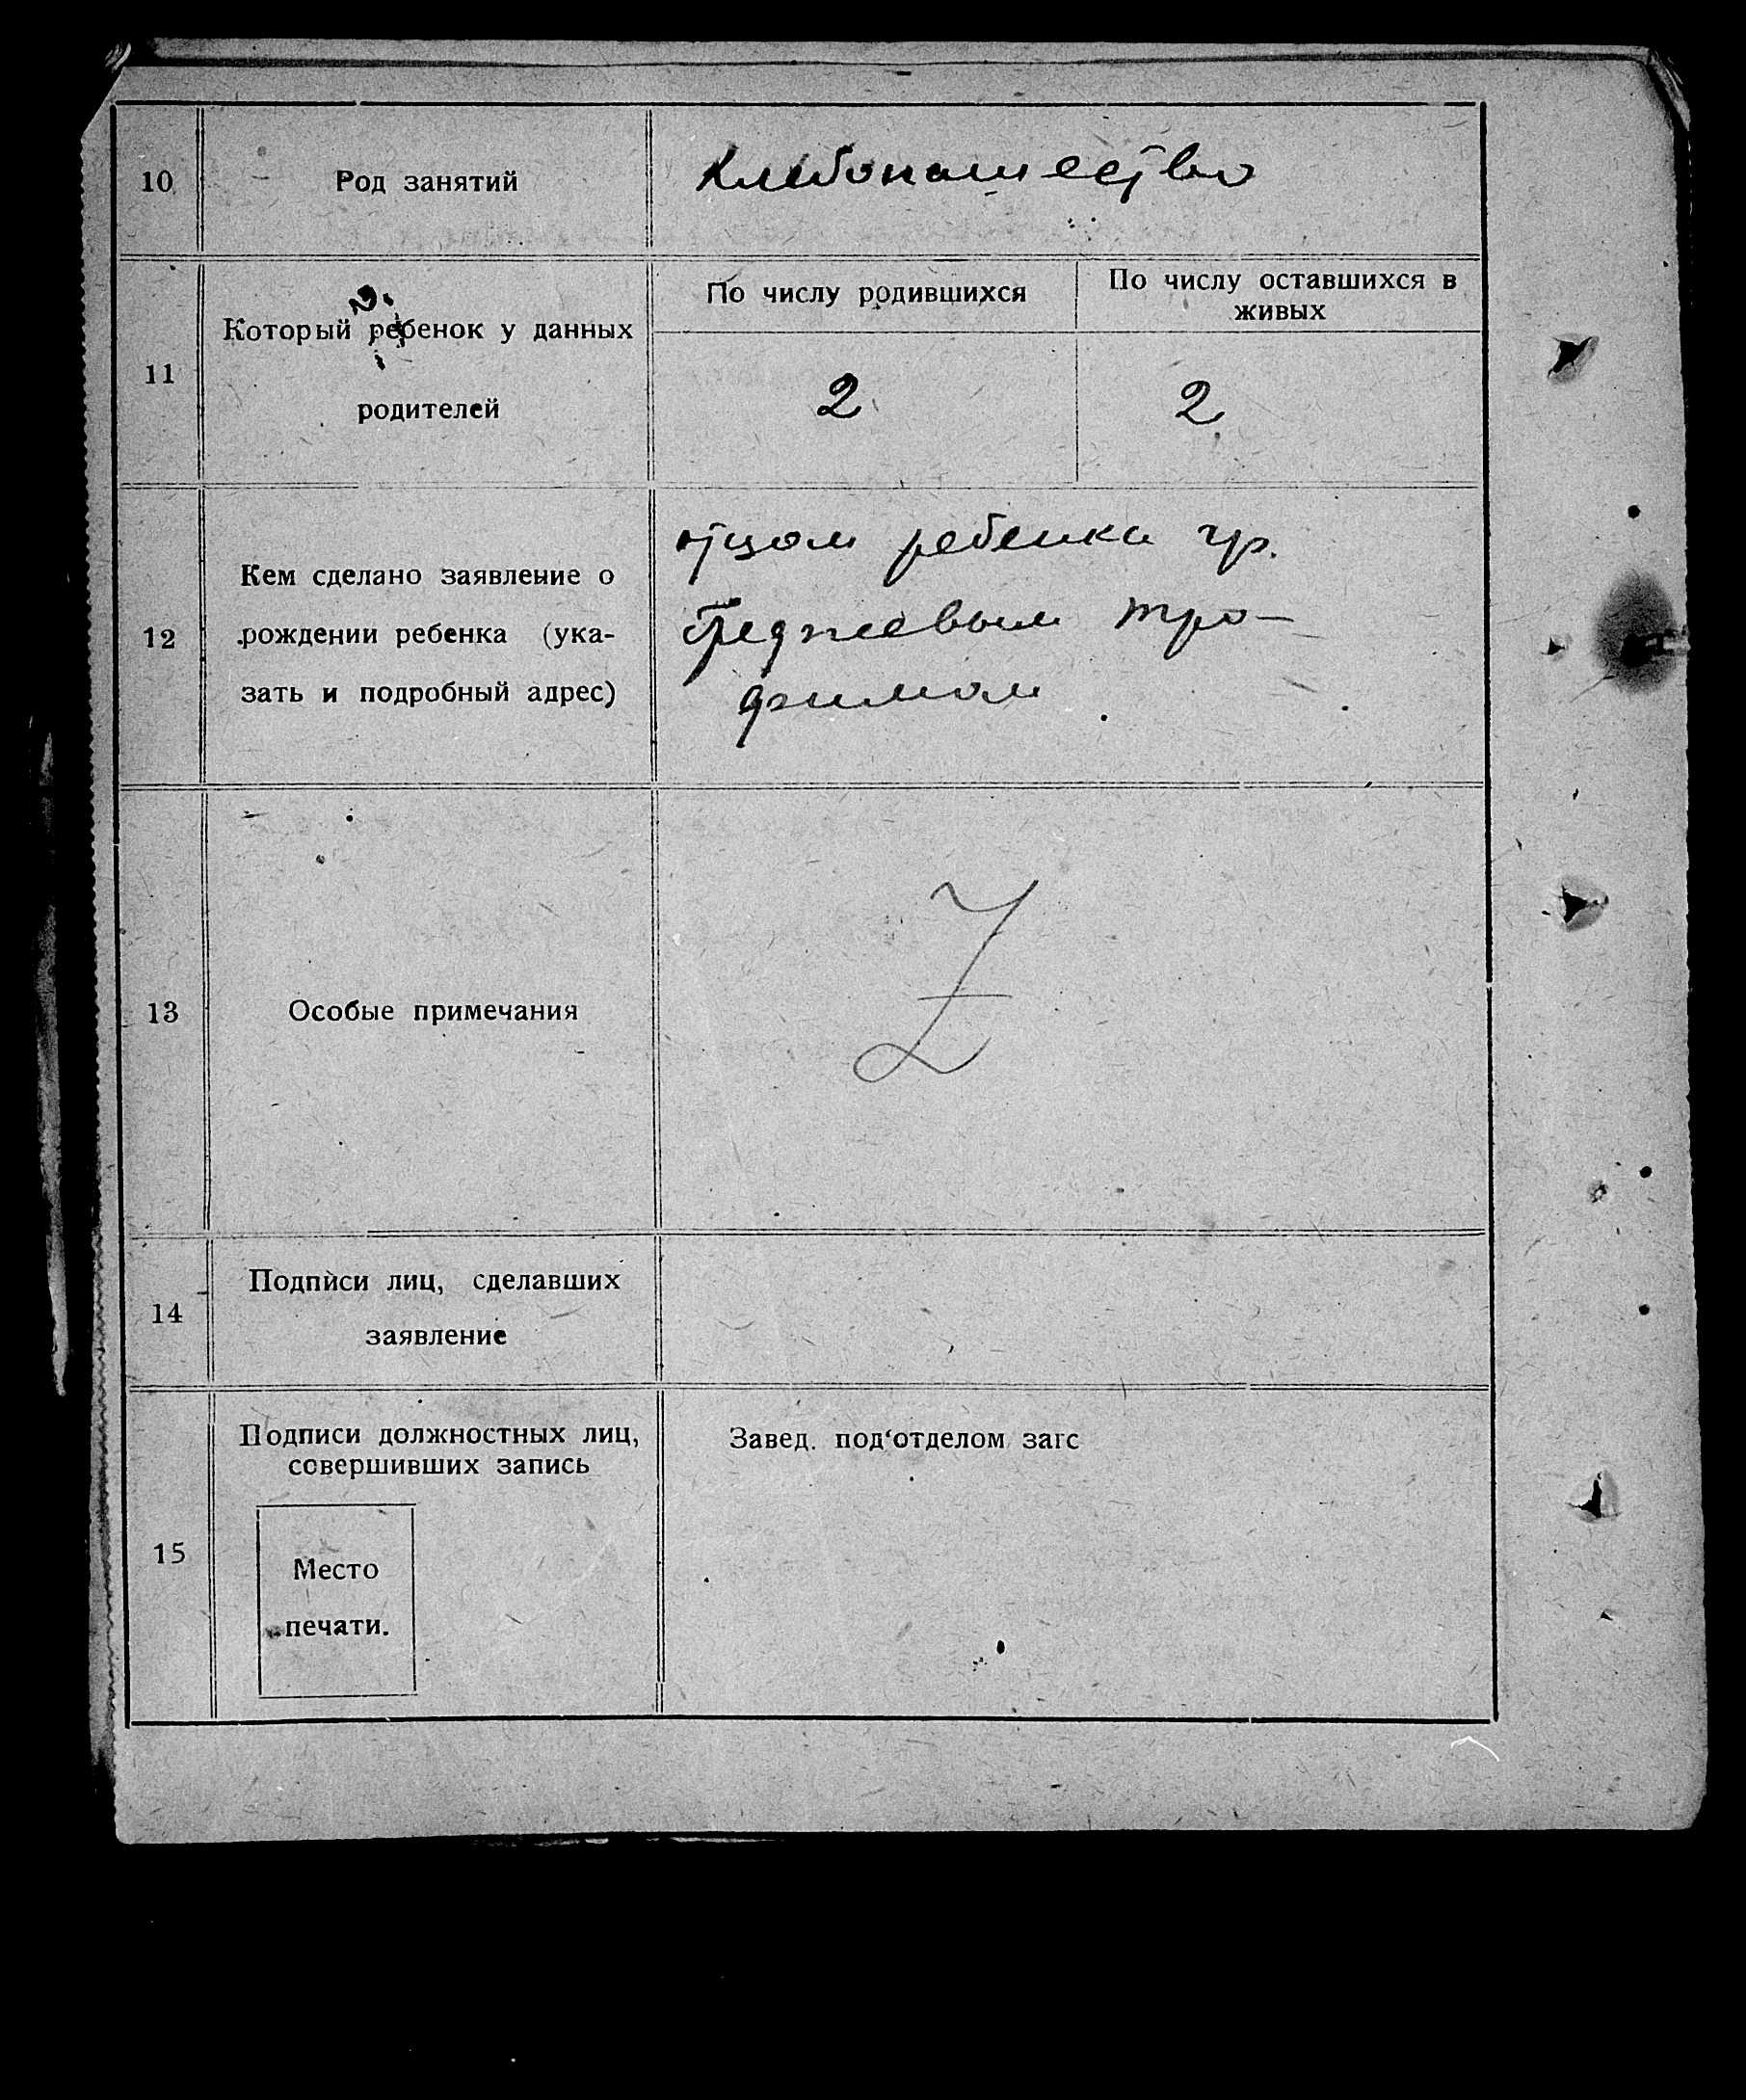 10 Род занятий Хлебопашество
11 Который ребенок у данных родителей
По числу родившихся
По числу оставшихся в
живых
2 2
12 Кем сделано заявление о
рождении ребенка (ука-
зать и подробный адрес)
отцом ребенка гр.
Тро-
фимом
13 Особые примечания Z
14 Подписи лиц, сделавших
заявление
15 Подписи должностных лиц,
совершивших запись
Завед. под‘отделом загс
Место
печати.